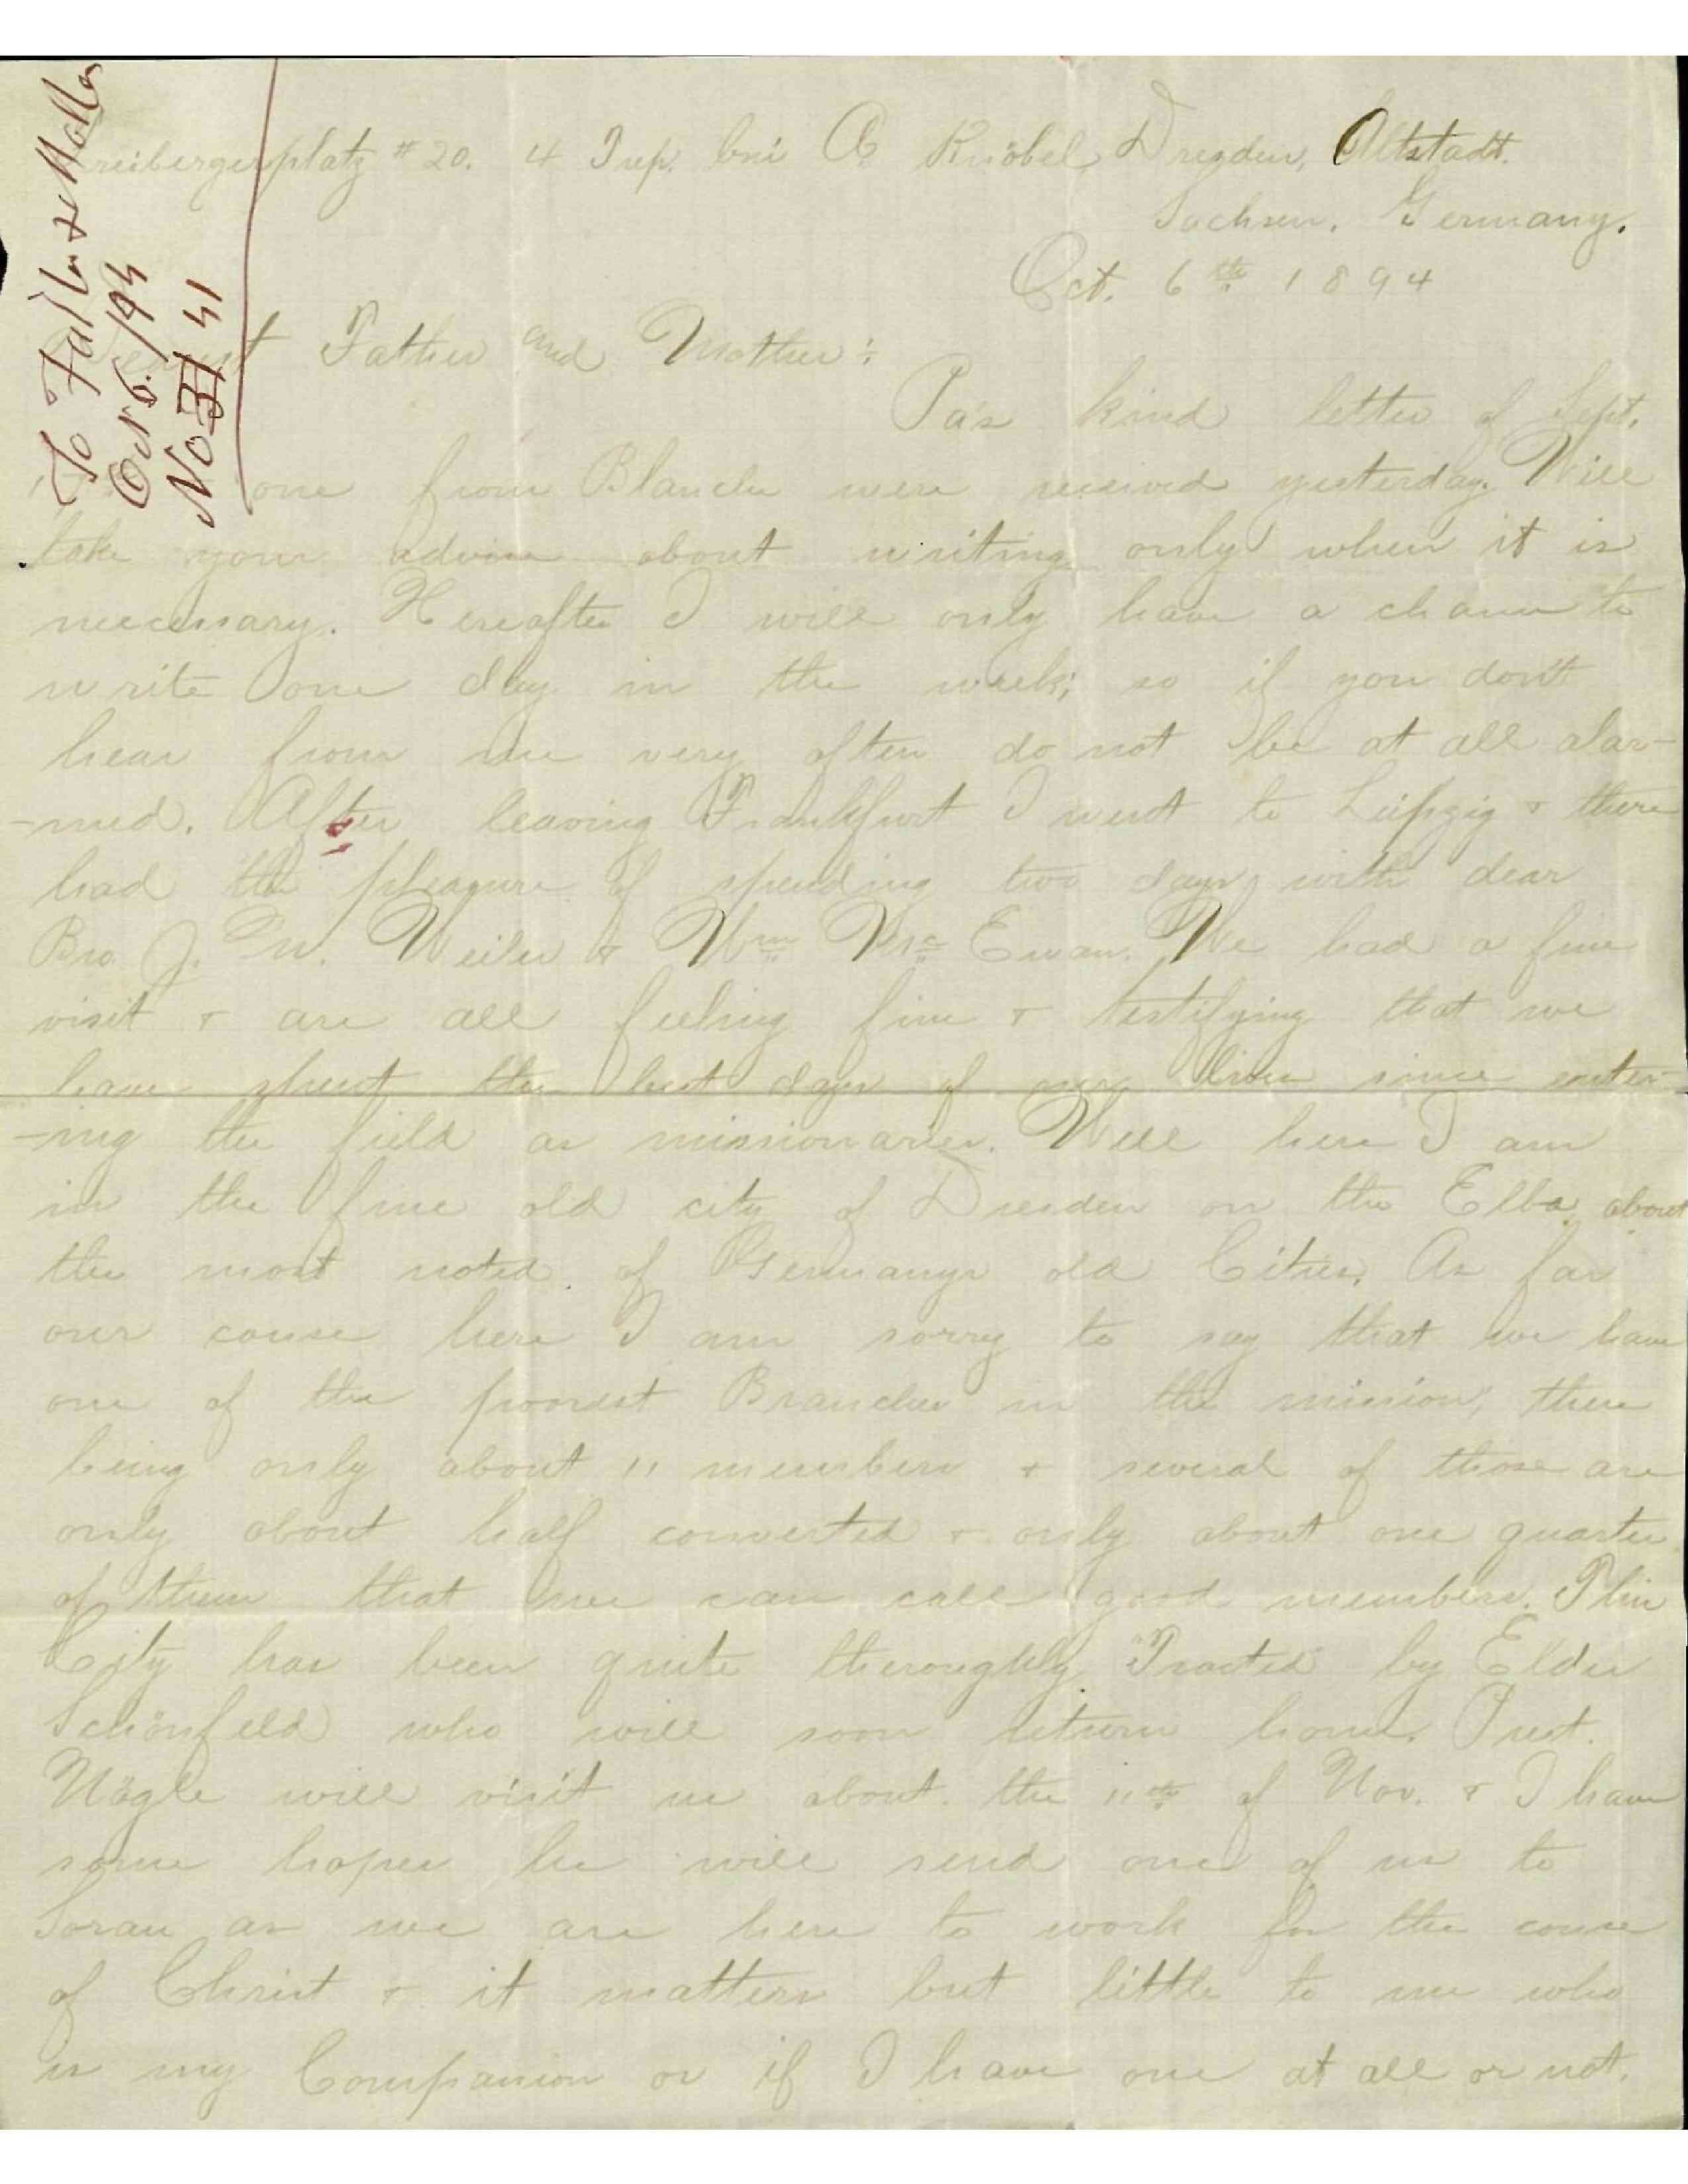 To Father & Mother
Oct 6. /94
No 31 41
Freibergerplatz # 20. 4 Trep. bei A Knöbel, Dresden, Altstadt.
Sachsen. Germany.
Oct. 6th 1894
Father and Mother:
Pa's kind letter of Sept.
one from Blanche were received yesterday. Will
take your advice about writing only when it is
neccessary. Hereafter I will only have a chance to
write one day in the week; so if you don't
hear from me very often do not be at all alar-
-med. After leaving Frankfurt I went to Leipzig & there
had the pleasure of spending two days with dear
Bro. J. W. Weiler & Wm Mc Ewan. We had a fine
visit & are all feeling fine & testifying that we
have spent the best days of our lives since enter-
-ing the field as missionaries. Well here I am
in the fine old city of Dresden on the Elba about
the most noted of Germanys old Cities. As far
our cause here I am sorry to say that we have
one of the poorest Branches in the mission, there
being only about 11 members & several of those are
only about half converted & only about one quarter
of them that we can call good members. This
City has been quite thoroughly Tracted by Elder
Schönfeld who will soon return home. Prest.
Nägle will visit us about the 11th of Nov. & I have
some hopes he will send one of us to
Sorau as we are here to work for the cause
of Christ & it matters but little to me who
is my Companion or if I have one at all or not.